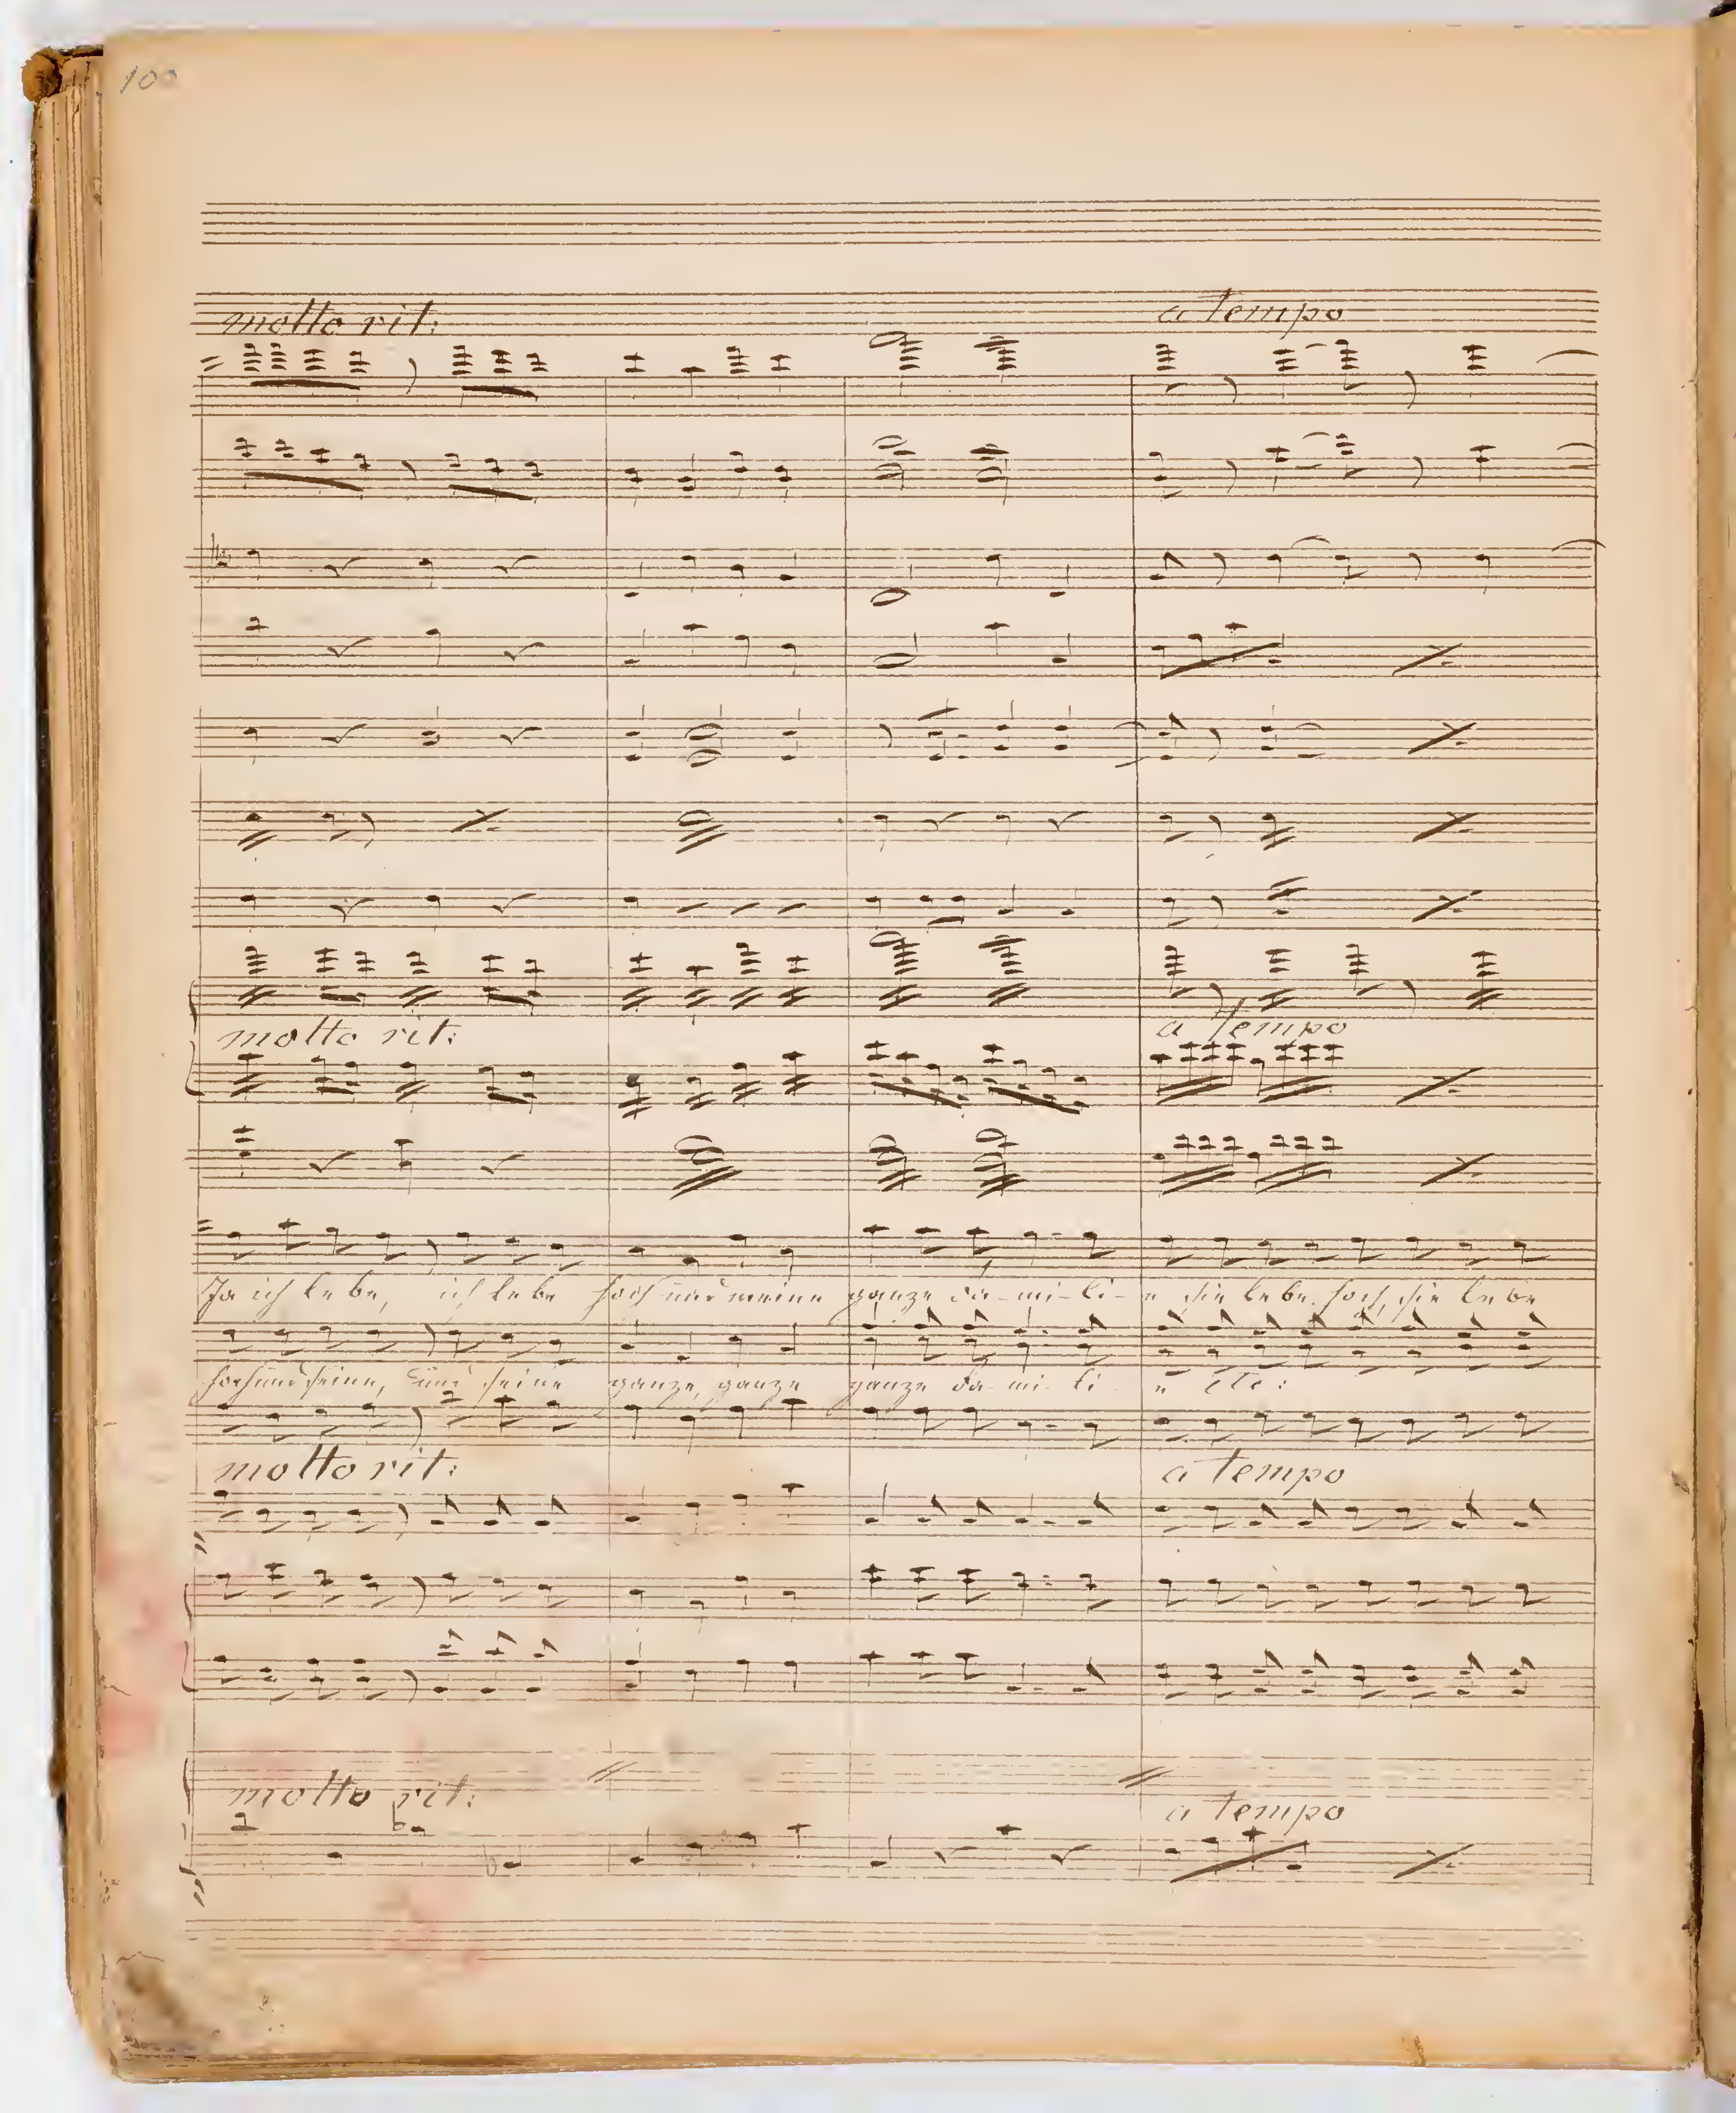 100
molto rit: a tempo
molto rit: a tempo
Ja ich lebe, ich lebe hoch und meine ganze Fa-mi-li-e sie lebe hoch, sie lebe
hoch und seine, und seine ganze, ganze ganze Fa-mi-li e etc:
molto rit: a tempo
molto rit: a tempo